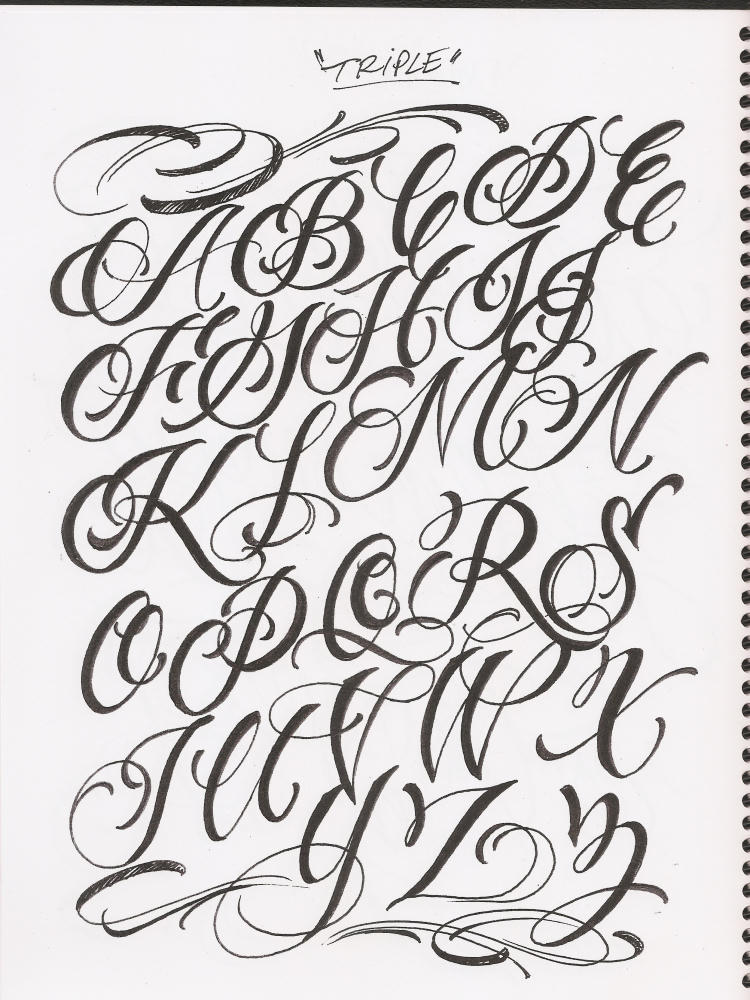 "TRiPLE"
A B C D E
F G H I J
K L M N
O P Q R S
T U V W X
Y Z Z